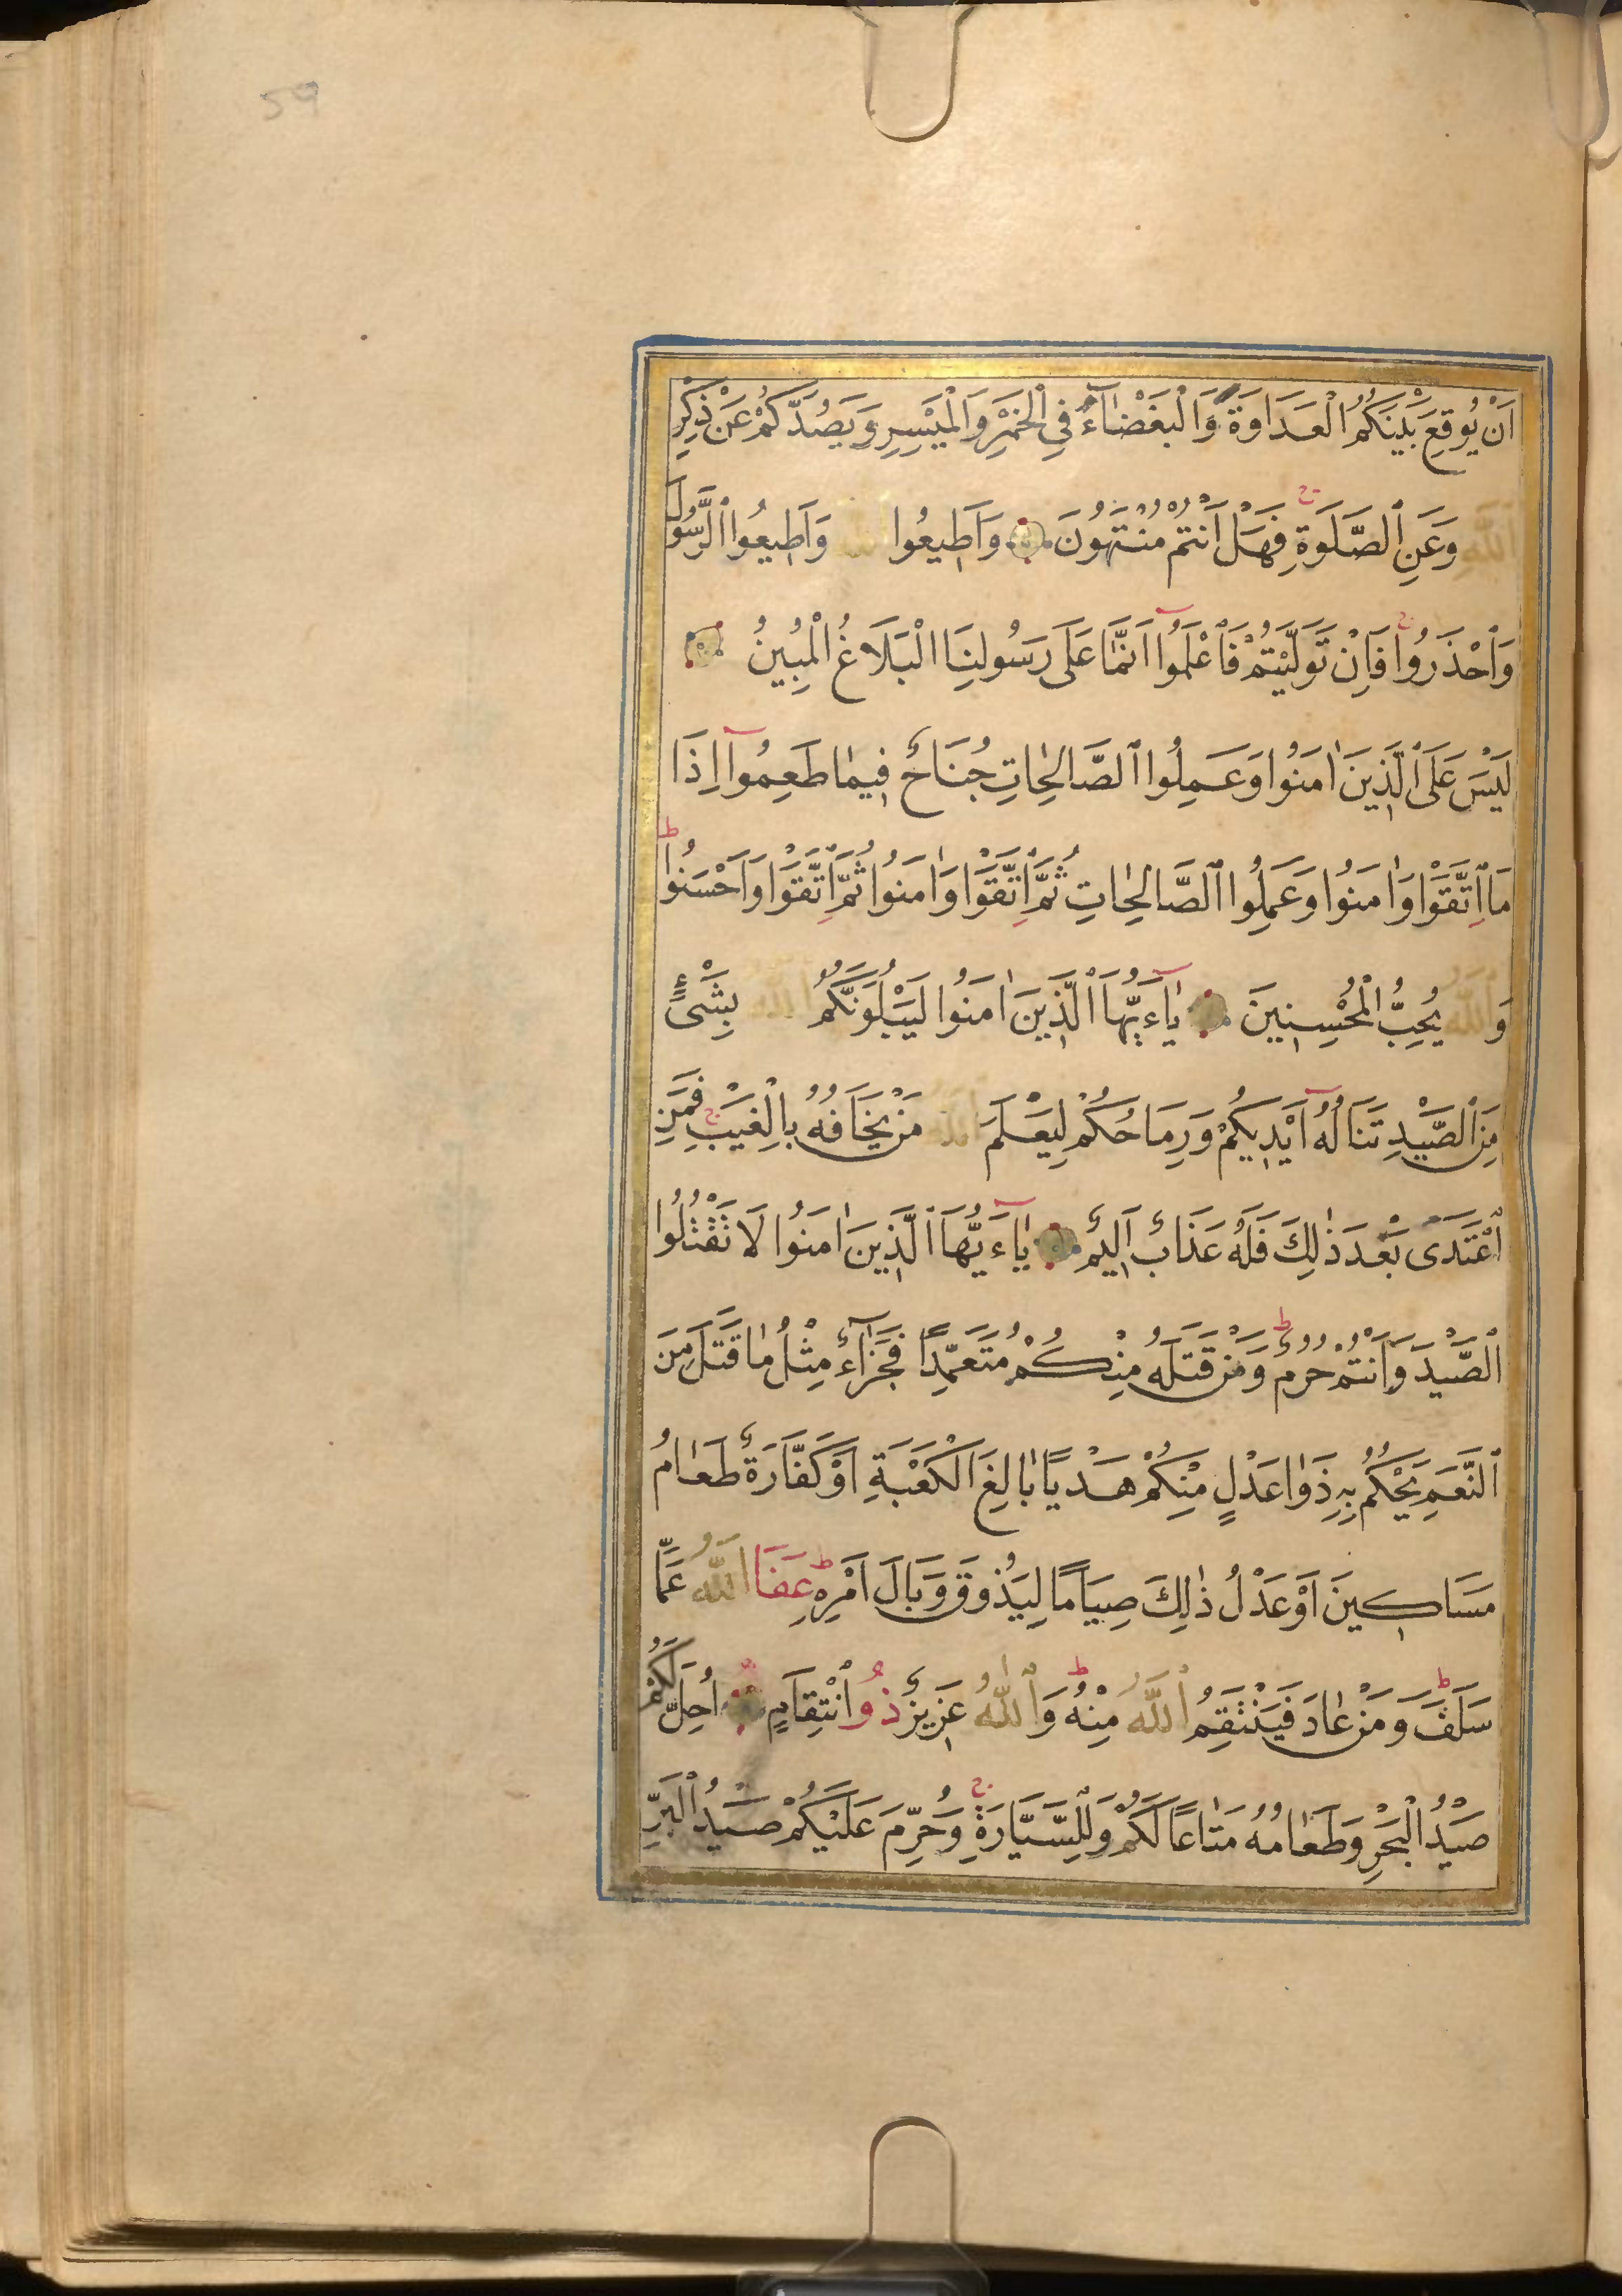 59
اَنْ يُوقِعَ بَيْنَكُمُ الْعَدَاوَةَ وَالْبَغْضَآءَ فِي الْخَمْرِ وَالْمَيْسِرِ وَيَصُدَّكُمْ عَنْ ذِكْرِ
اللّٰهِ وَعَنِ الصَّلٰوةِ ج فَهَلْ اَنْتُمْ مُنْتَهُونَ وَاَطِيعُوا اللّٰهَ وَاَطِيعُوا الرَّسُولَ
وَاحْذَرُوا ج فَاِنْ تَوَلَّيْتُمْ فَاعْلَمُٓوا اَنَّمَا عَلَى رَسُولِنَا الْبَلَاغُ الْمُبِينُ
لَيْسَ عَلَى الَّذِينَ اٰمَنُوا وَعَمِلُوا الصَّالِحَاتِ جُنَاحٌ فِيمَا طَعِمُوٓا اِذَا
مَا اتَّقَوْا وَاٰمَنُوا وَعَمِلُوا الصَّالِحَاتِ ثُمَّ اتَّقَوْا وَاٰمَنُوا ثُمَّ اتَّقَوْا وَاَحْسَنُوا ط
وَاللّٰهُ يُحِبُّ الْمُحْسِنِينَ يَآءَيُّهَا الَّذِينَ اٰمَنُوا لَيَبْلُوَنَّكُمُ اللّٰهُ بِشَىْءٍ
مِنَ الصَّيْدِ تَنَالُهُٓ اَيْدِيكُمْ وَرِمَاحُكُمْ لِيَعْلَمَ اللّٰهُ مَنْ يَخَافُهُ بِالْغَيْبِ ج فَمَنِ
اعْتَدَى بَعْدَ ذٰلِكَ فَلَهُ عَذَابٌ اَلِيمٌ يَآءَيُّهَا الَّذِينَ اٰمَنُوا لَا تَقْتُلُوا
الصَّيْدَ وَاَنْتُمْ حُرُمٌ ط وَمَنْ قَتَلَهُ مِنْكُمْ مُتَعَمِّدًا فَجَزَآءٌ مِثْلُ مَا قَتَلَ مِنَ
النَّعَمِ يَحْكُمُ بِهِ ذَوَا عَدْلٍ مِنْكُمْ هَدْيًا بَالِغَ الْكَعْبَةِ اَوْ كَفَّارَةٌ طَعَامُ
مَسَاكِينَ اَوْ عَدْلُ ذٰلِكَ صِيَامًا لِيَذُوقَ وَبَالَ اَمْرِهِ ط عَفَا اللّٰهُ عَمَّا
سَلَفَ ط وَمَنْ عَادَ فَيَنْتَقِمُ اللّٰهُ مِنْهُ ط وَاللّٰهُ عَزِيزٌ ذُو انْتِقَامٍ اُحِلَّ لَكُمْ
صَيْدُ الْبَحْرِ وَطَعَامُهُ مَتَاعًا لَكُمْ وَلِلسَّيَّارَةِ ج وَحُرِّمَ عَلَيْكُمْ صَيْدُ الْبَرِّ